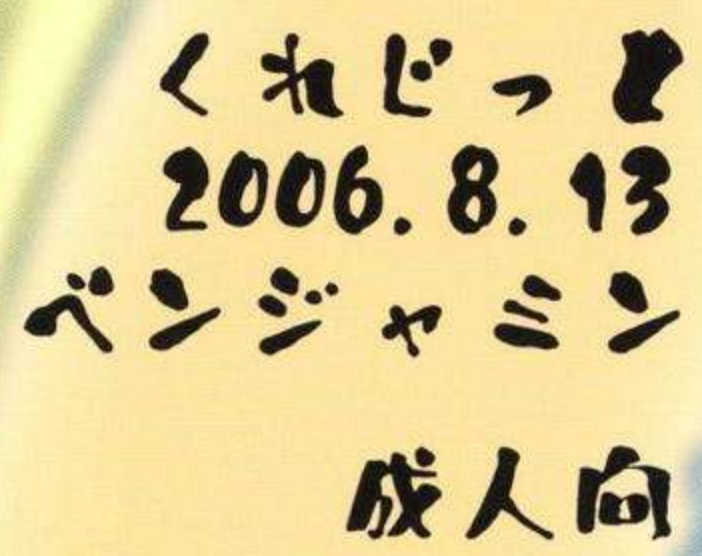 くれじっと
2006.8.13
ベンジャミン
成人向